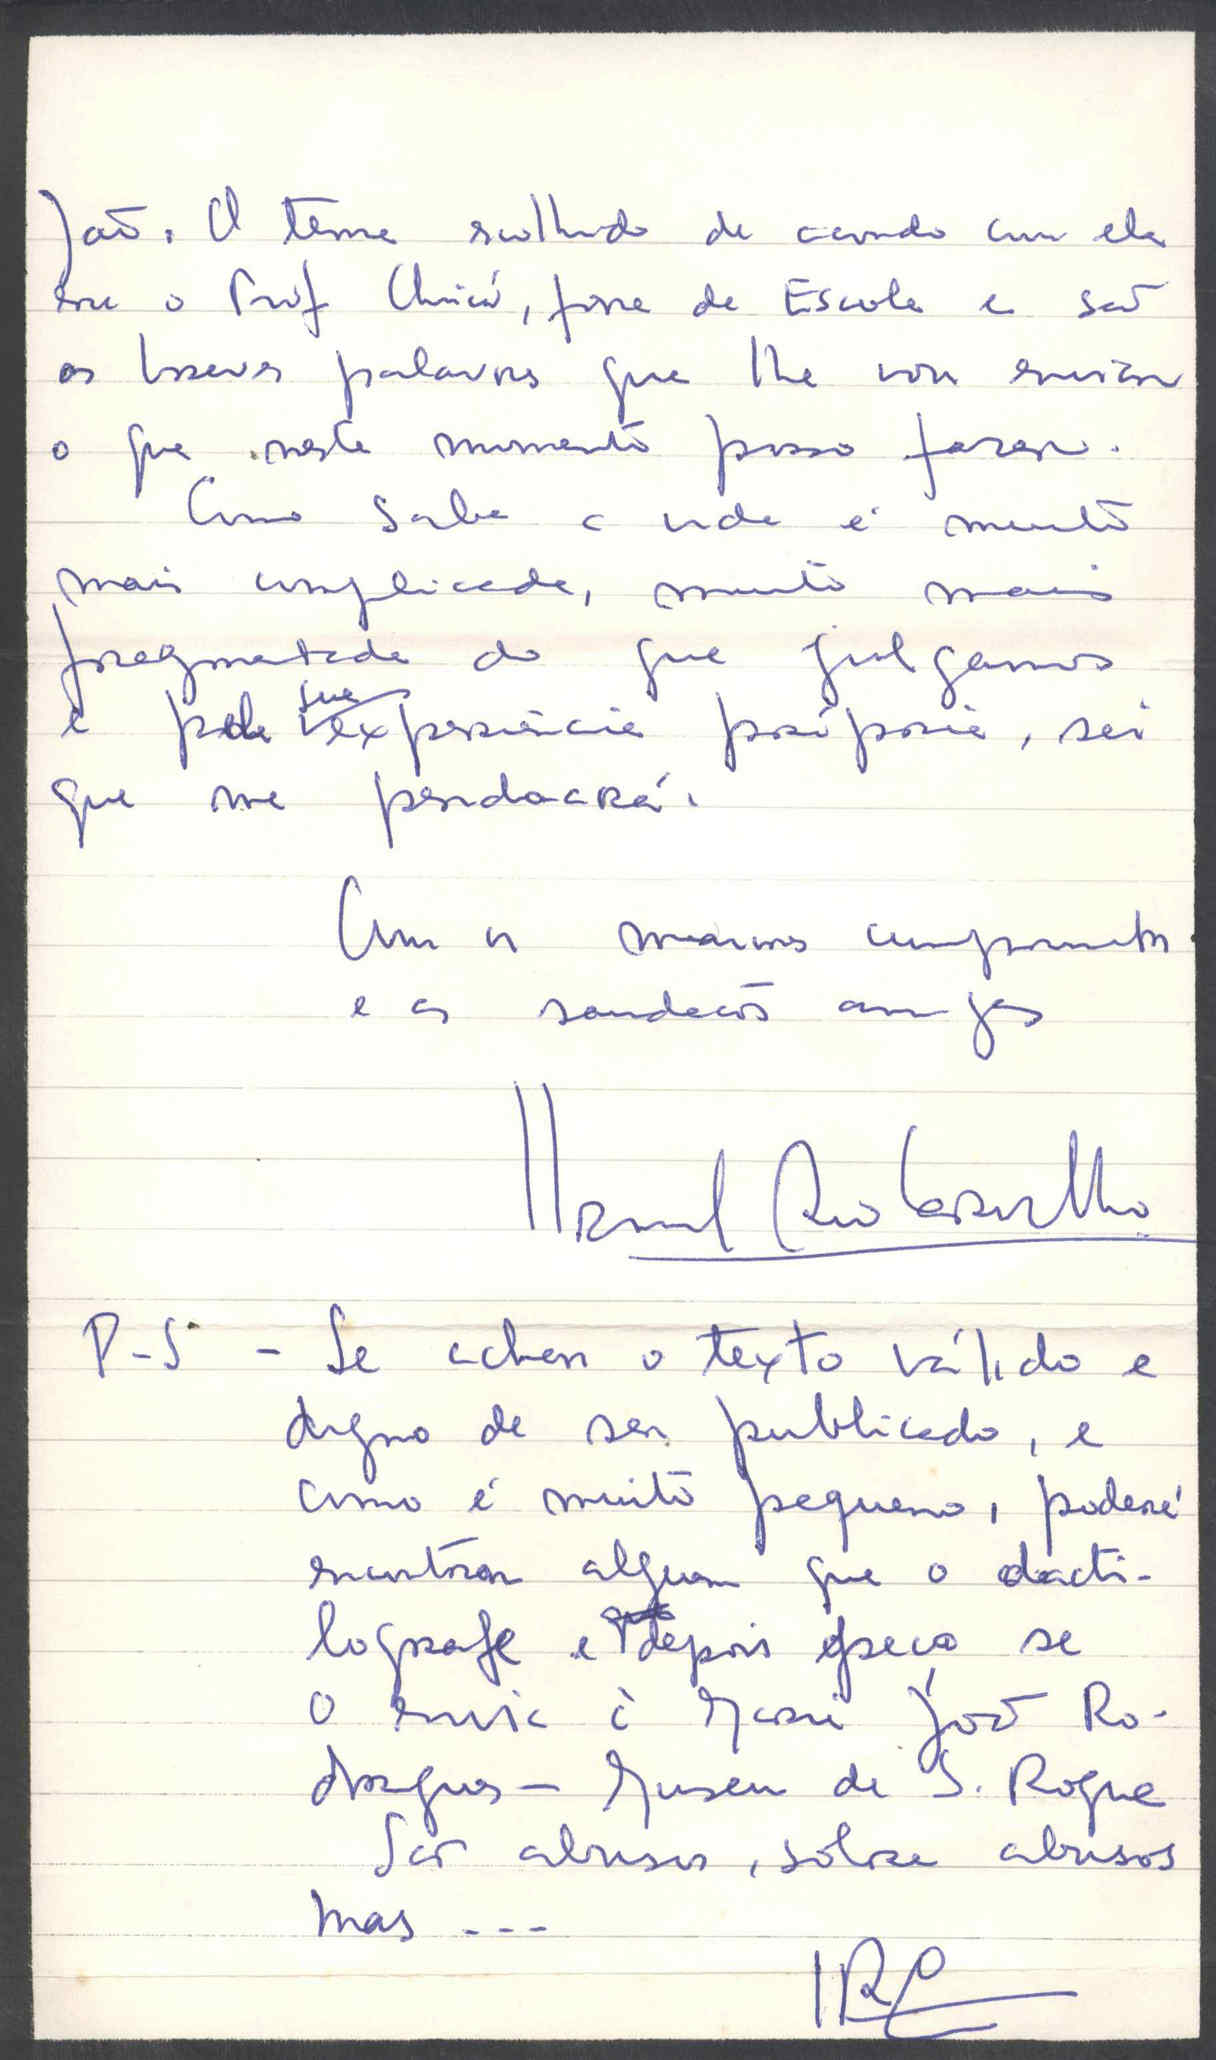 João. O tema escolhido de acordo com ela
era o Prof Chicó, fora de Escola e são
as breves palavras que lhe vou enviar
o que neste momento posso fazer.
Como sabe a vida é muito
mais complicada, muito mais
fragmentada do que julgamos
e pela sua experiência própria, sei
que me perdoará.
Com os maiores cumprimentos
e as saudações amigas
Manuel Rio Carvalho
P-S - Se achar o texto válido e
digno de ser publicado, e
como é muito pequeno, poderá
encontrar alguem que o dacti-
lografe e depois peça se
o envia à Maria João Ro-
drigues - Museu de S. Roque
São abusos, sobre abusos
mas ---
MRC